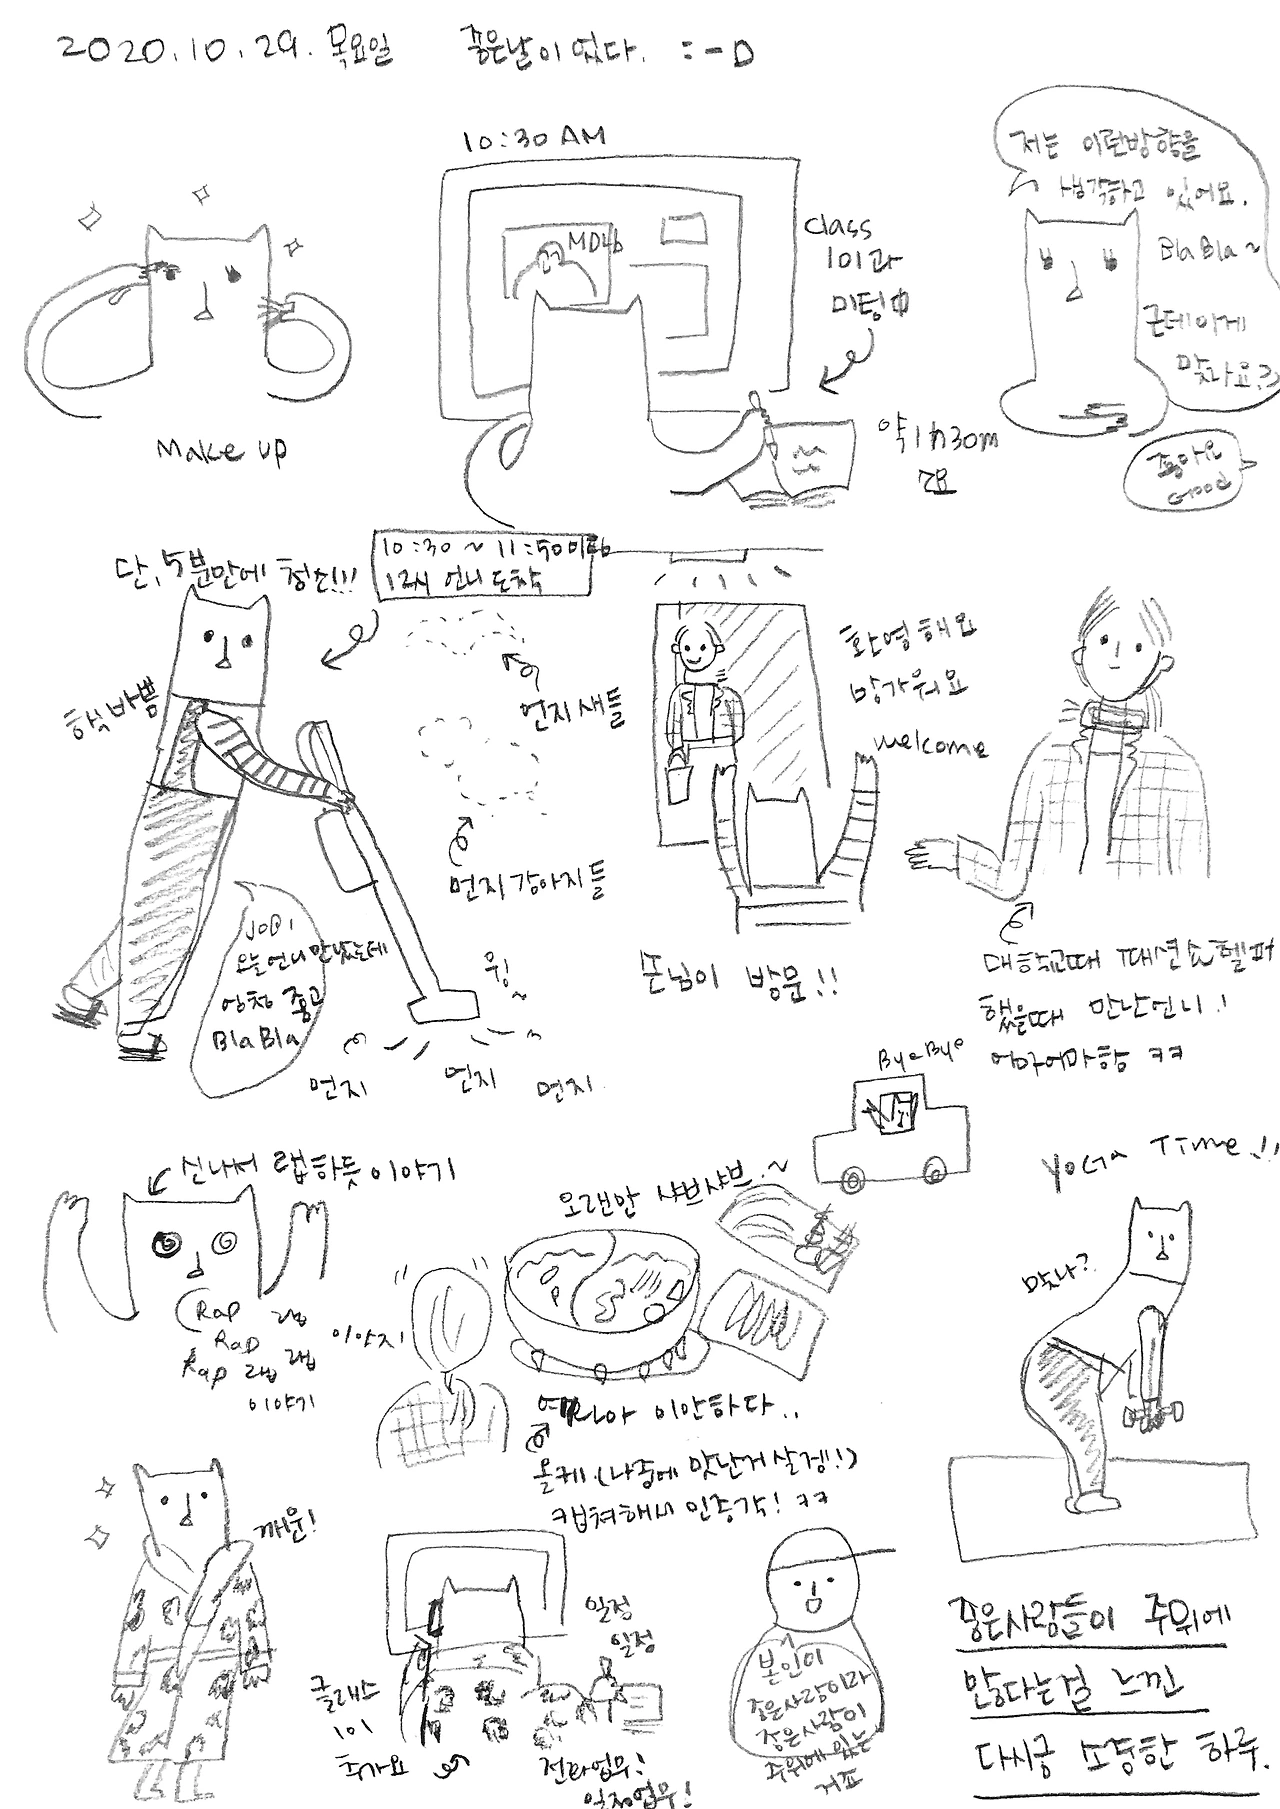 2020.10.29. 목요일 좋은날이었다. :-D
10:30 AM
MD님
Class
101과
미팅中
약 1h30m
저는 이런방향을
생각하고 있어요.
BlaBla~
근데이게
맞나요?
좋아요
Good
Make up
단, 5분만에 청소!!!
10:30 ~ 11:50미팅
12시 언니 도착
핵바쁨
먼지새들
먼지강아지들
JODI
오늘언니만났는데
엄청 좋고
BlaBla
윙~
먼지
먼지
먼지
환영해요
반가워요
welcome
손님이 방문!!
대학교때 패션쇼헬퍼
했을때 만난언니!
어마어마함 ㅋㅋ
Bye Bye
신나서 랩하듯이야기
Rap 랩
Rap
Rap 랩 랩
이야기
오랜만 샤브샤브~
이야지
미안하다..
올케(나중에 맛난거살겡!)
캡쳐해서 인증각! ㅋㅋ
YOGA Time!!
맞나?
깨운!
클래스
101
추가요
일정
일정
전화업무!
일정업무!
본인이
좋은사람이라
좋은사람이
주위에있는
거죠
좋은사람들이 주위에
많다는걸 느낀
다시금 소중한 하루.